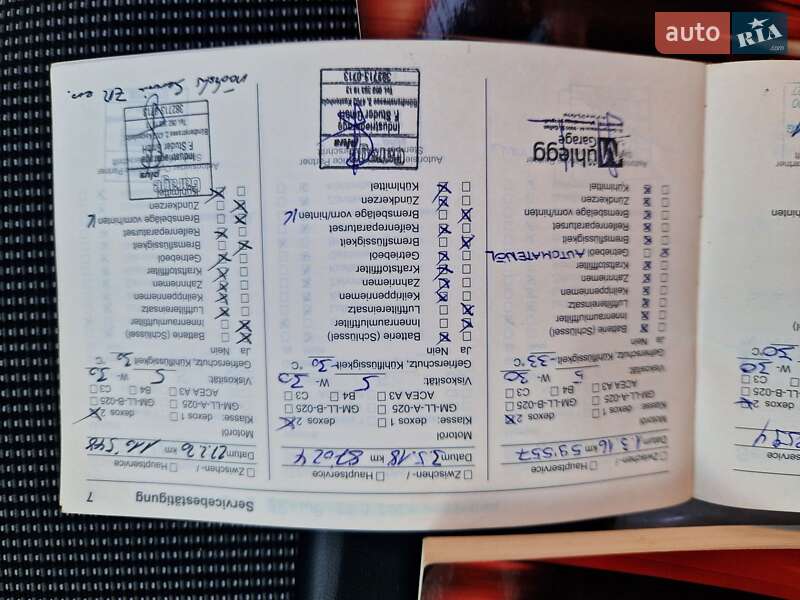 auto RIA
Servicebestätigung
7
Zwischen- /
Hauptservice
Datum 1.3.16 km 59'557
Motoröl
Klasse: dexos 1 dexos 2
GM-LL-A-025 GM-LL-B-025
ACEA A3 B4 C3
Viskosität: 5 W- 30
Gefrierschutz, Kühlflüssigkeit -33 °C
Ja Nein
Batterie (Schlüssel)
Innenraumluftfilter
Luftfiltereinsatz
Keilrippenriemen
Zahnriemen
Kraftstofffilter
Getriebeöl AUTOMATENÖL
Bremsflüssigkeit
Reifenreparaturset
Bremsbeläge vorn/hinten
Zündkerzen
Kühlmittel
Mühlegg
Garage
Zwischen- /
Hauptservice
Datum 3.5.18 km 87'024
Motoröl
Klasse: dexos 1 dexos 2
GM-LL-A-025 GM-LL-B-025
ACEA A3 B4 C3
Viskosität: 5 W- 30
Gefrierschutz, Kühlflüssigkeit -30 °C
Ja Nein
Batterie (Schlüssel)
Innenraumluftfilter
Luftfiltereinsatz
Keilrippenriemen
Zahnriemen
Kraftstofffilter
Getriebeöl
Bremsflüssigkeit
Reifenreparaturset
Bremsbeläge vorn/hinten
Zündkerzen
Kühlmittel
plus
Industriegarage
F. Studer GmbH
382713-0713
Zwischen- /
Hauptservice
Datum km
Motoröl
Klasse: dexos 1 dexos 2
GM-LL-A-025 GM-LL-B-025
ACEA A3 B4 C3
Viskosität: 5 W- 30
Gefrierschutz, Kühlflüssigkeit °C
Ja Nein
Batterie (Schlüssel)
Innenraumluftfilter
Luftfiltereinsatz
Keilrippenriemen
Zahnriemen
Kraftstofffilter
Getriebeöl
Bremsflüssigkeit
Reifenreparaturset
Bremsbeläge vorn/hinten
Zündkerzen
Kühlmittel
plus
Industriegarage
F. Studer GmbH
382713-0713